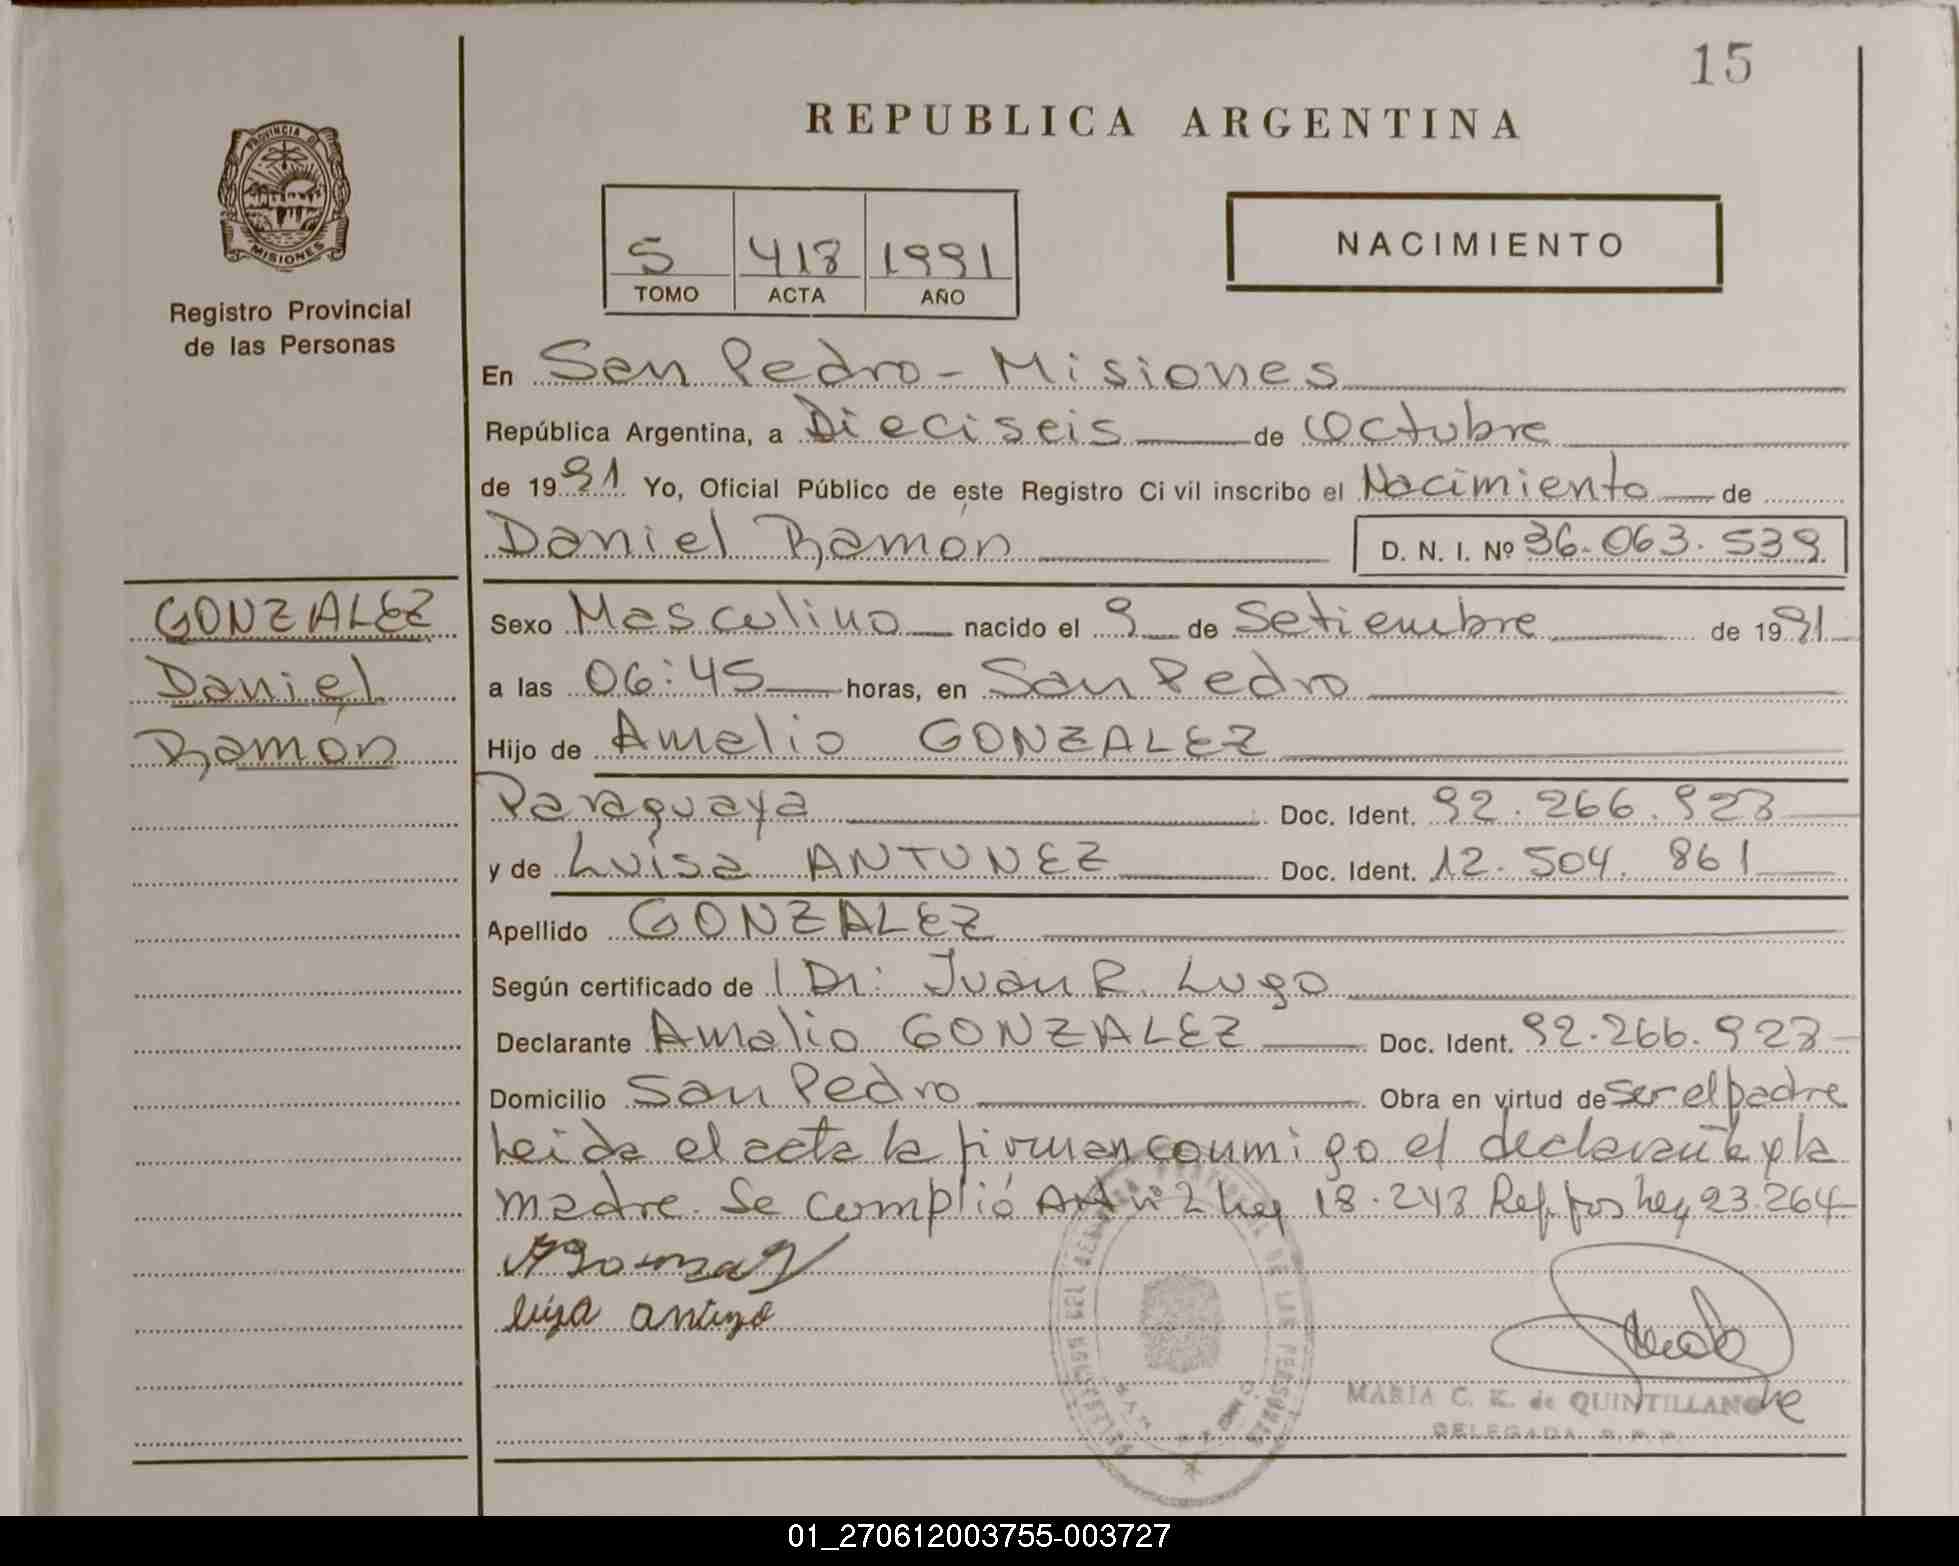 15
REPUBLICA ARGENTINA
PROVINCIA DE
MISIONES
Registro Provincial
de las Personas
5 418 1991
TOMO ACTA AÑO
NACIMIENTO
En San Pedro - Misiones
República Argentina, a Dieciseis de Octubre
de 1991 Yo, Oficial Público de este Registro Ci vil inscribo el Nacimiento de
Daniel Ramón D. N. I. Nº 36.063.539
GONZALEZ
Daniel
Ramón
Sexo Masculino nacido el 9 de Setiembre de 1991
a las 06:45 horas, en San Pedro
Hijo de Amelio GONZALEZ
Paraguaya Doc. Ident. 92.266.923
y de Luisa ANTUNEZ Doc. Ident. 12.504.861
Apellido GONZALEZ
Según certificado de Dr: Juan R. Lugo
Declarante Amalio GONZALEZ Doc. Ident. 92.266.923
Domicilio San Pedro Obra en virtud de ser el padre
Leida el acta la firman conmigo el declarante y la
madre. Se complió Art nº 2 ley 18.248 Ref. por ley 23.264
luisa
MARIA C. K. de QUINTILLAN
DELEGADA R.P.P.
01_270612003755-003727